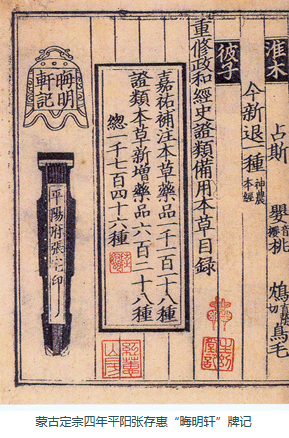 淮木 占斯 嬰桃 鴆鳥毛
今新退一種 神農本經
彼子
重修政和經史證類備用本草目錄
嘉祐補注本草藥品一千一百一十八種
證類本草新增藥品六百二十八種
總一千七百四十六種
晦明軒記
平陽府張宅印
蒙古定宗四年平阳张存惠“晦明轩”牌记